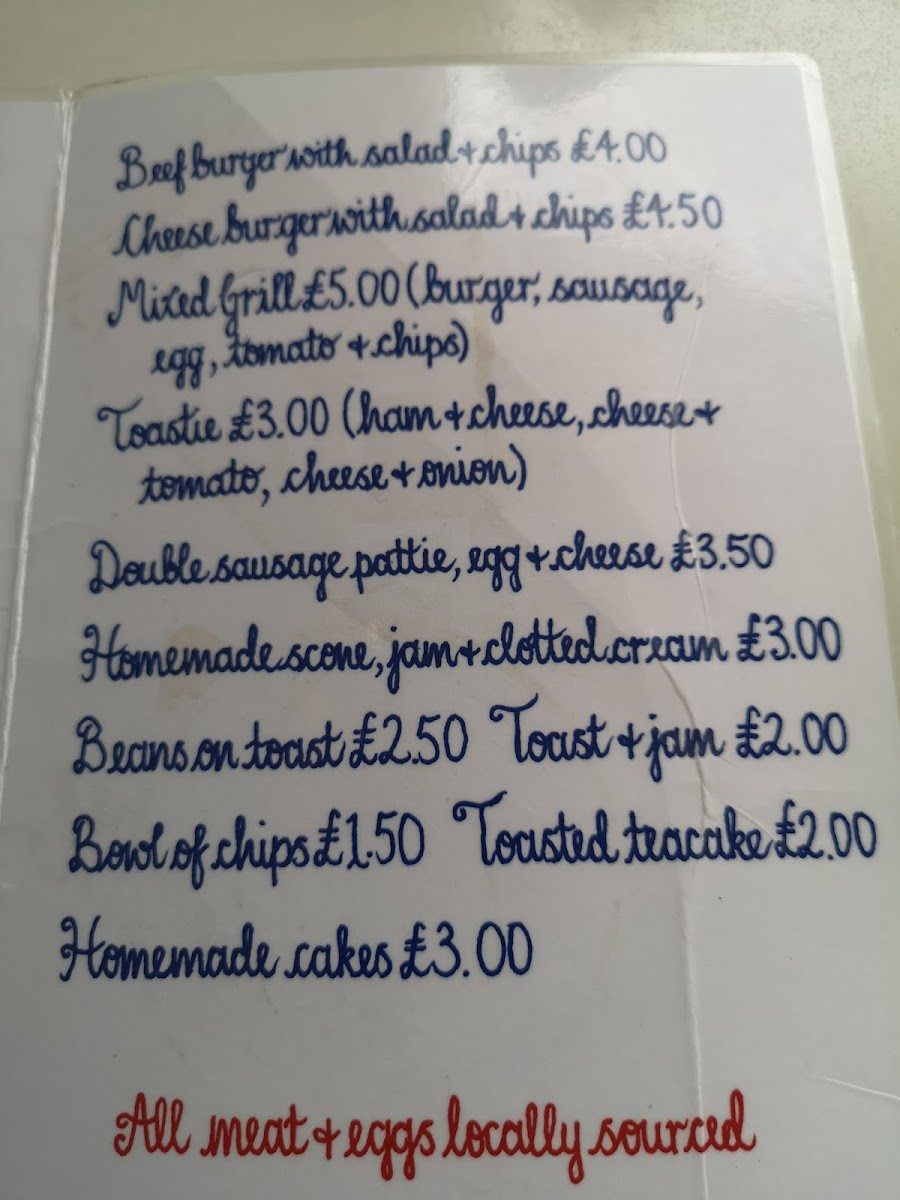 Beef burger with salad + chips £4.00
Cheese burger with salad + chips £4.50
Mixed Grill £5.00 (burger, sausage,
egg, tomato + chips)
Toastie £3.00 (ham + cheese, cheese +
tomato, cheese + onion)
Double sausage pattie, egg + cheese £3.50
Homemade scone, jam + clotted cream £3.00
Beans on toast £2.50 Toast + jam £2.00
Bowl of chips £1.50 Toasted teacake £2.00
Homemade cakes £3.00
All meat + eggs locally sourced